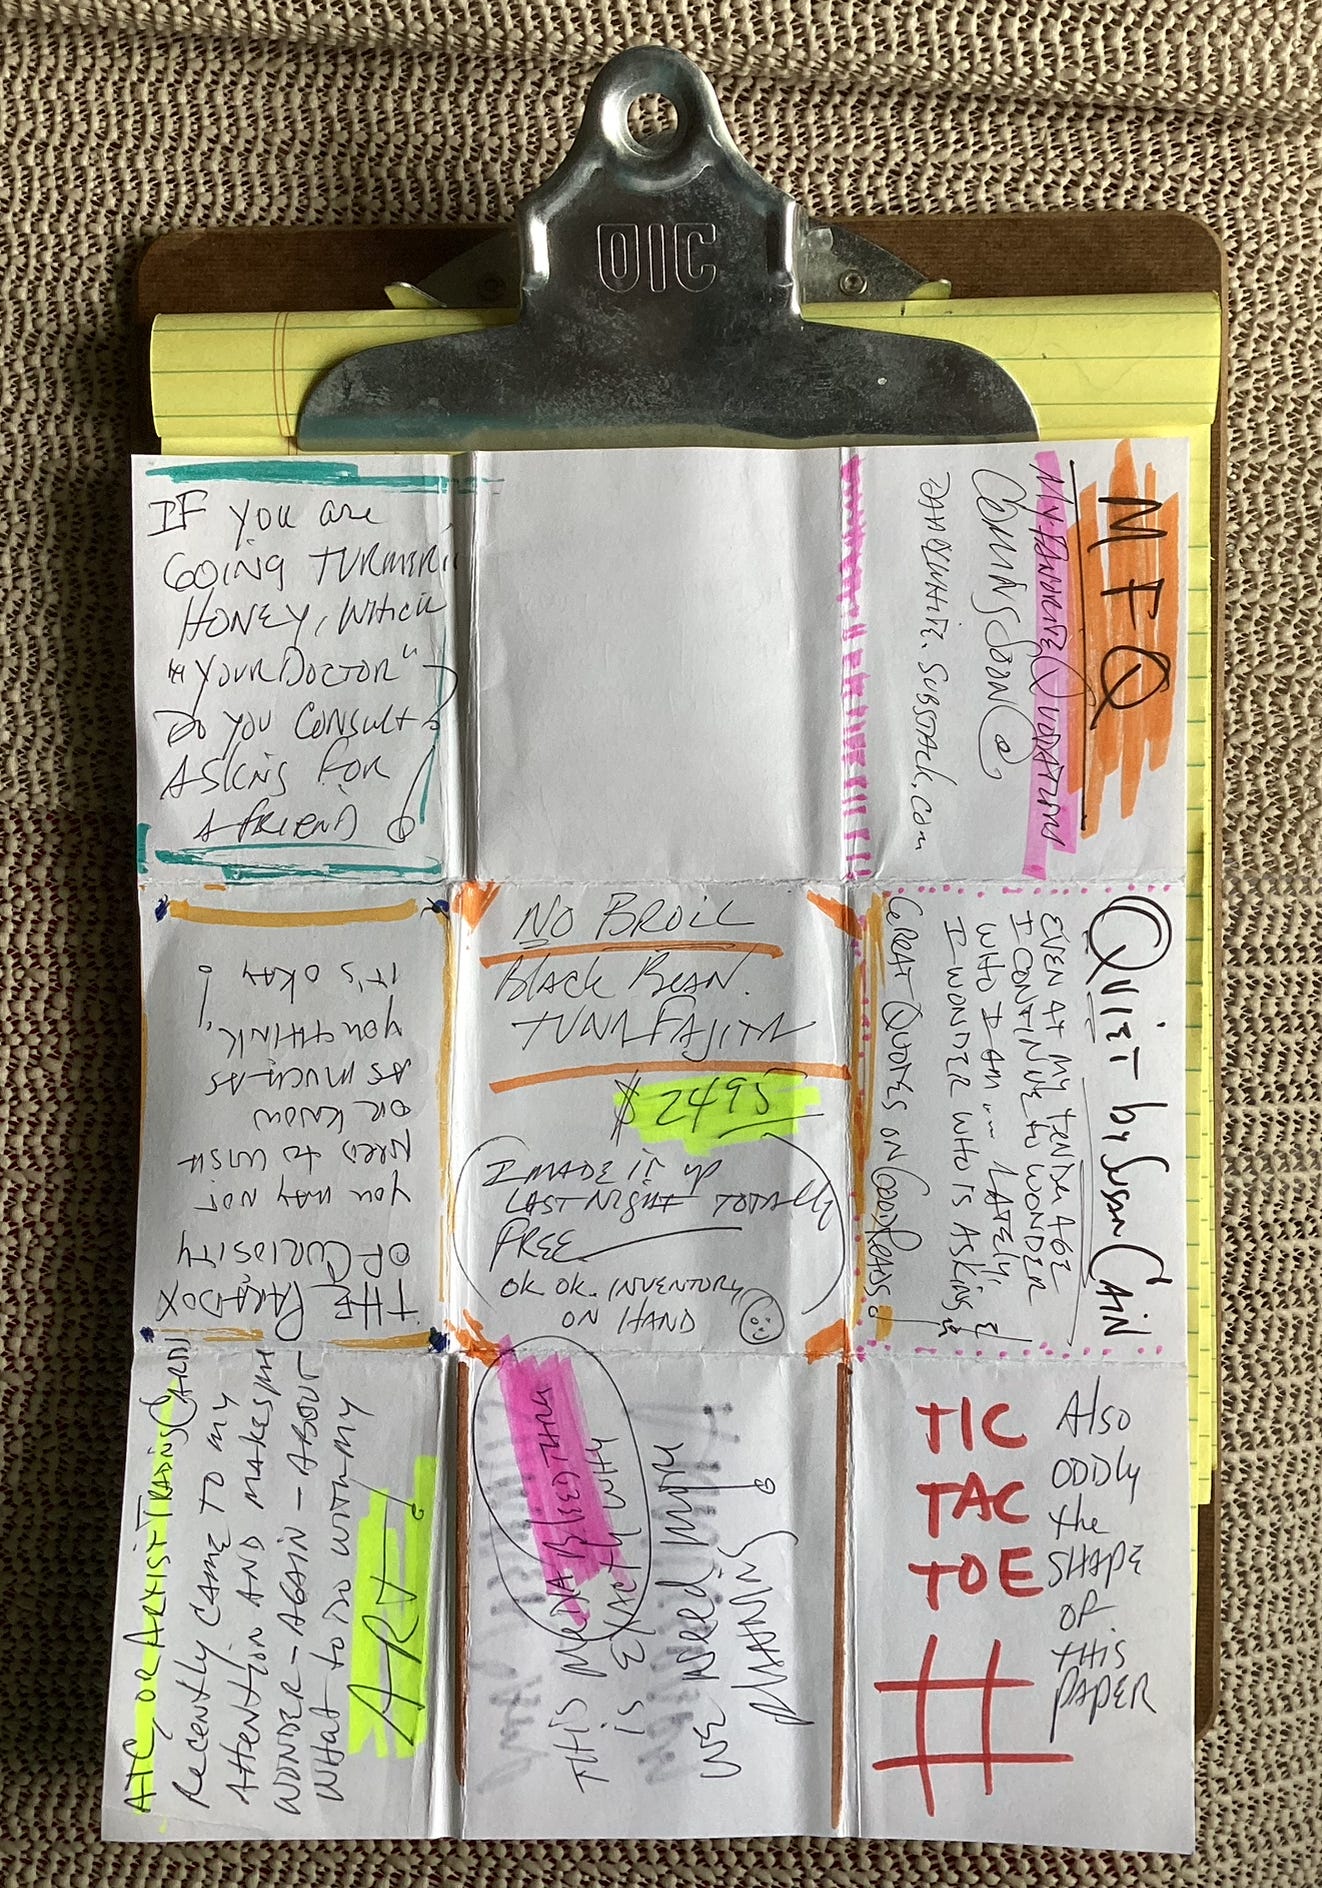 OIC
IF you are
GOING TURMERIC
HONEY, WHICH
"YOUR DOCTOR"
DO YOU CONSULT?
ASKING FOR
A FRIEND
MFQ
MY FAVORITE QUOTATIONS
COMING SOON @
.SUBSTACK.COM
THE PARADOX
OF CURIOSITY
YOU MAY NOT
NEED TO WISH
OR KNOW
AS MUCH AS
YOU THINK,
IT'S OKAY!
NO BROIL
BLACK BEAN
TUNA FAJITA
$2495
I MADE IT UP
LAST NIGHT TOTALLY
FREE
OK OK. INVENTORY
ON HAND
QUIET by SUSAN CAIN
EVEN AT MY TENDER AGE
I CONTINUE TO WONDER
WHO I AM ... LATELY,
I WONDER WHO IS ASKING
GREAT QUOTES ON GOODREADS!
ATC, OR ARTIST TRADING CARD
RECENTLY CAME TO MY
ATTENTION AND MAKES ME
WONDER - AGAIN - ABOUT
WHAT TO DO WITH MY
ART
THIS MEDIA BLEED THRU
IS EXACTLY WHY
WE NEED MORE
PLANNING
TIC
TAC
TOE
Also
ODDLY
the
SHAPE
OF
THIS
PAPER